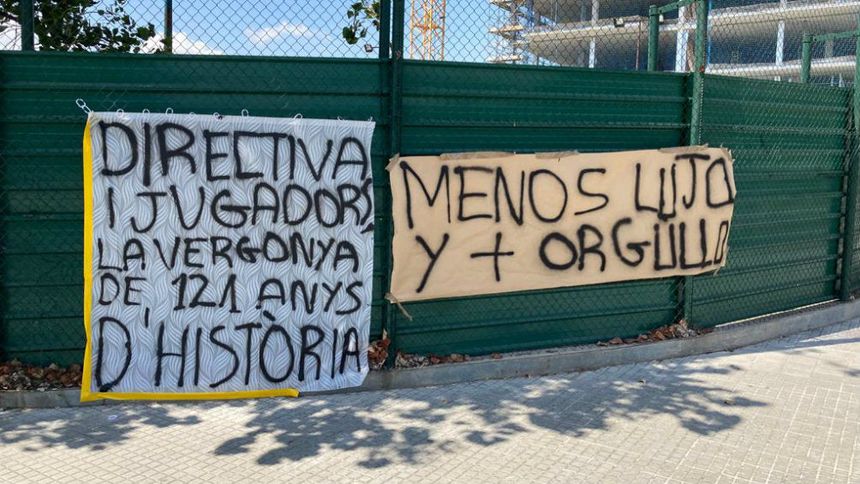 DIRECTIVA
I JUGADORS,
LA VERGONYA
DE, 121 ANYS
D'HISTÒRIA
MENOS LUJO
Y + ORGÜLLO